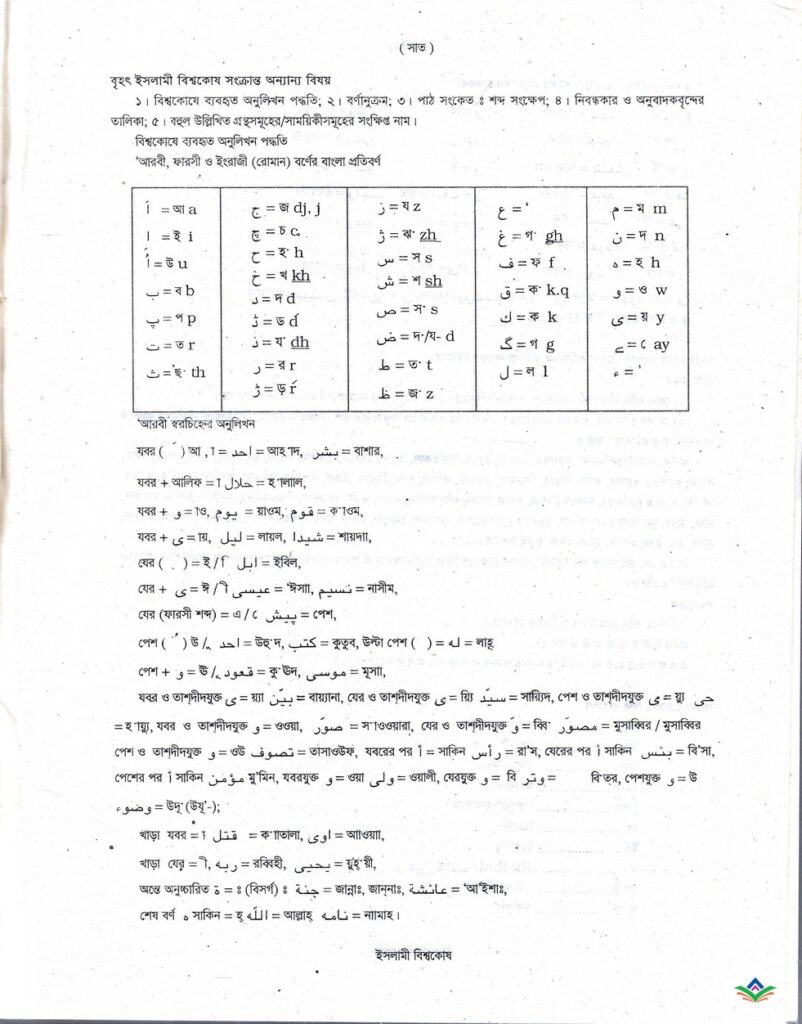 ( সাত )
বৃহৎ ইসলামী বিশ্বকোষ সংক্রান্ত অন্যান্য বিষয়
১। বিশ্বকোষে ব্যবহৃত অনুলিখন পদ্ধতি; ২। বর্ণানুক্রম; ৩। পাঠ সংকেত ঃ শব্দ সংক্ষেপ; ৪। নিবন্ধকার ও অনুবাদকবৃন্দের
তালিকা; ৫। বহুল উল্লিখিত গ্রন্থসমূহের/সাময়িকীসমূহের সংক্ষিপ্ত নাম।
বিশ্বকোষে ব্যবহৃত অনুলিখন পদ্ধতি
'আরবী, ফারসী ও ইংরাজী (রোমান) বর্ণের বাংলা প্রতিবর্ণ
اَ = আ a
ا = ই i
اُ = উ u
ب = ব b
پ = প p
ت = ত r
ث = ছ· th
ج = জ dj, j
چ = চ c
ح = হ· h
خ = খ kh
د = দ d
ڈ = ড d
ذ = য· dh
ر = র r
ڑ = ড় ŕ
ز = য z
ژ = ঝ· zh
س = স s
ش = শ sh
ص = স· s
ض = দ·/য- d
ط = ত· t
ظ = জ· z
ع = ‘
غ = গ· gh
ف = ফ f
ق = ক· k.q
ك = ক k
گ = গ g
ل = ল l
م = ম m
ن = দ n
ه = হ h
و = ও w
ى = য় y
ے = ে ay
ء = '
'আরবী স্বরচিহ্নের অনুলিখন
যবর ( َ ) আ , া = احد = আহ·াদ, بشر = বাশার,
যবর + আলিফ = া حلال = হ·ালাল,
যবর + و = াও, يوم = য়াওম, قوم = ক·াওম,
যবর + ى = ায়, ليل = লায়ল, شيدا = শায়দাা,
যের ( ِ ) = ই / ি ابل = ইবিল,
যের + ى = ঈ / ী عيسى = 'ঈসাা, نسيم = নাসীম,
যের (ফারসী শব্দ) = এ / ে پيش = পেশ,
পেশ ( ُ ) উ / ু احد = উহু·দ, كتب = কুতুব, উল্টা পেশ ( ) = له = লাহূ
পেশ + و = ঊ / ূ قعود = কু·'ঊদ, موسى = মূসাা,
যবর ও তাশ্দীদযুক্ত ى = য়্যা بيّن = বায়্যানা, যের ও তাশ্দীদযুক্ত ى = য়্যি سيّد = সায়্যিদ, পেশ ও তাশ্দীদযুক্ত ى = য়্যু حى
= হ·ায়্যু, যবর ও তাশ্দীদযুক্ত و = ওওয়া, صوّر = স·াওওয়ারা, যের ও তাশ্দীদযুক্ত وّ = ব্বি مصوّر = মুসাব্বির / মুসাব্বির
পেশ ও তাশ্দীদযুক্ত و = ওউ تصوف = তাসাওউফ, যবরের পর أ = সাকিন رأس = রা'স, যেরের পর أ সাকিন بئس = বি'সা,
পেশের পর أ সাকিন مؤمن মু'মিন, যবরযুক্ত و = ওয়া ولى = ওয়ালী, যেরযুক্ত و = বি وتر = বি'ত্র, পেশযুক্ত و = উ
وضوء = উদূ· (উযূ'-);
খাড়া যবর = া قتل = ক·াতালা, اوى = আাওয়াা,
খাড়া যের = ী, ربه = রব্বিহী, يحيى = য়ুহ্·য়ী,
অন্তে অনুচ্চারিত ة = ঃ (বিসর্গ) ঃ جنة = জান্নাঃ, জান্‌নাঃ, عائشة = 'আ'ইশাঃ,
শেষ বর্ণ ه সাকিন = হ্ الله = আল্লাহ্ نامه = নাামাহ।
ইসলামী বিশ্বকোষ